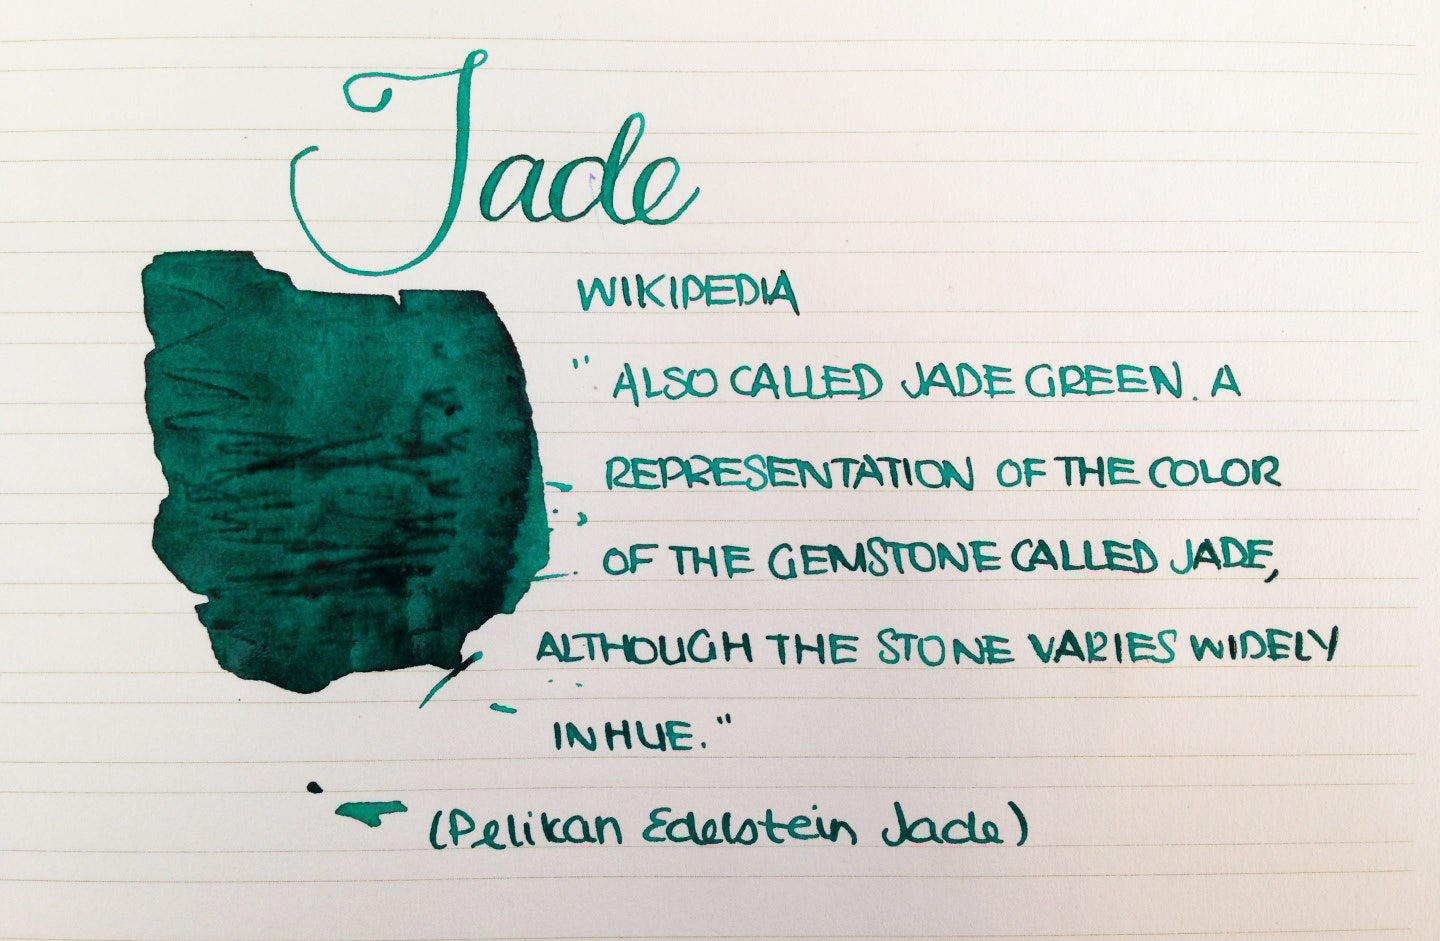 Jade
WIKIPEDIA
"ALSO CALLED JADE GREEN. A
REPRESENTATION OF THE COLOR
OF THE GEMSTONE CALLED JADE,
ALTHOUGH THE STONE VARIES WIDELY
IN HUE."
(Pelikan Edelstein Jade)